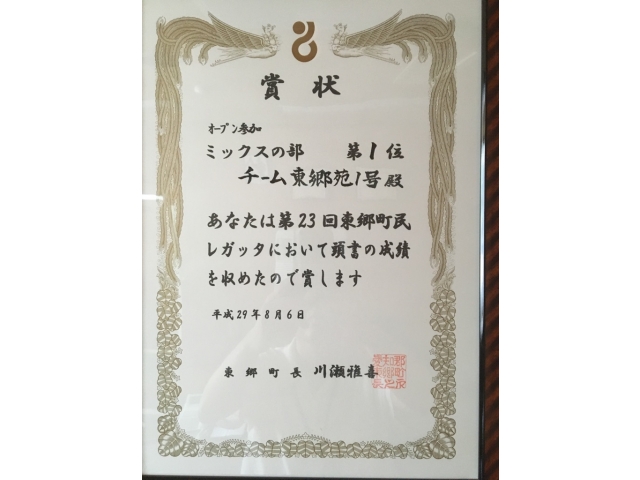 賞状
オープン参加
ミックスの部 第1位
チーム東郷苑1号殿
あなたは第23回東郷町民
レガッタにおいて頭書の成績
を収めたので賞します
平成29年8月6日
東郷町長 川瀬雅喜